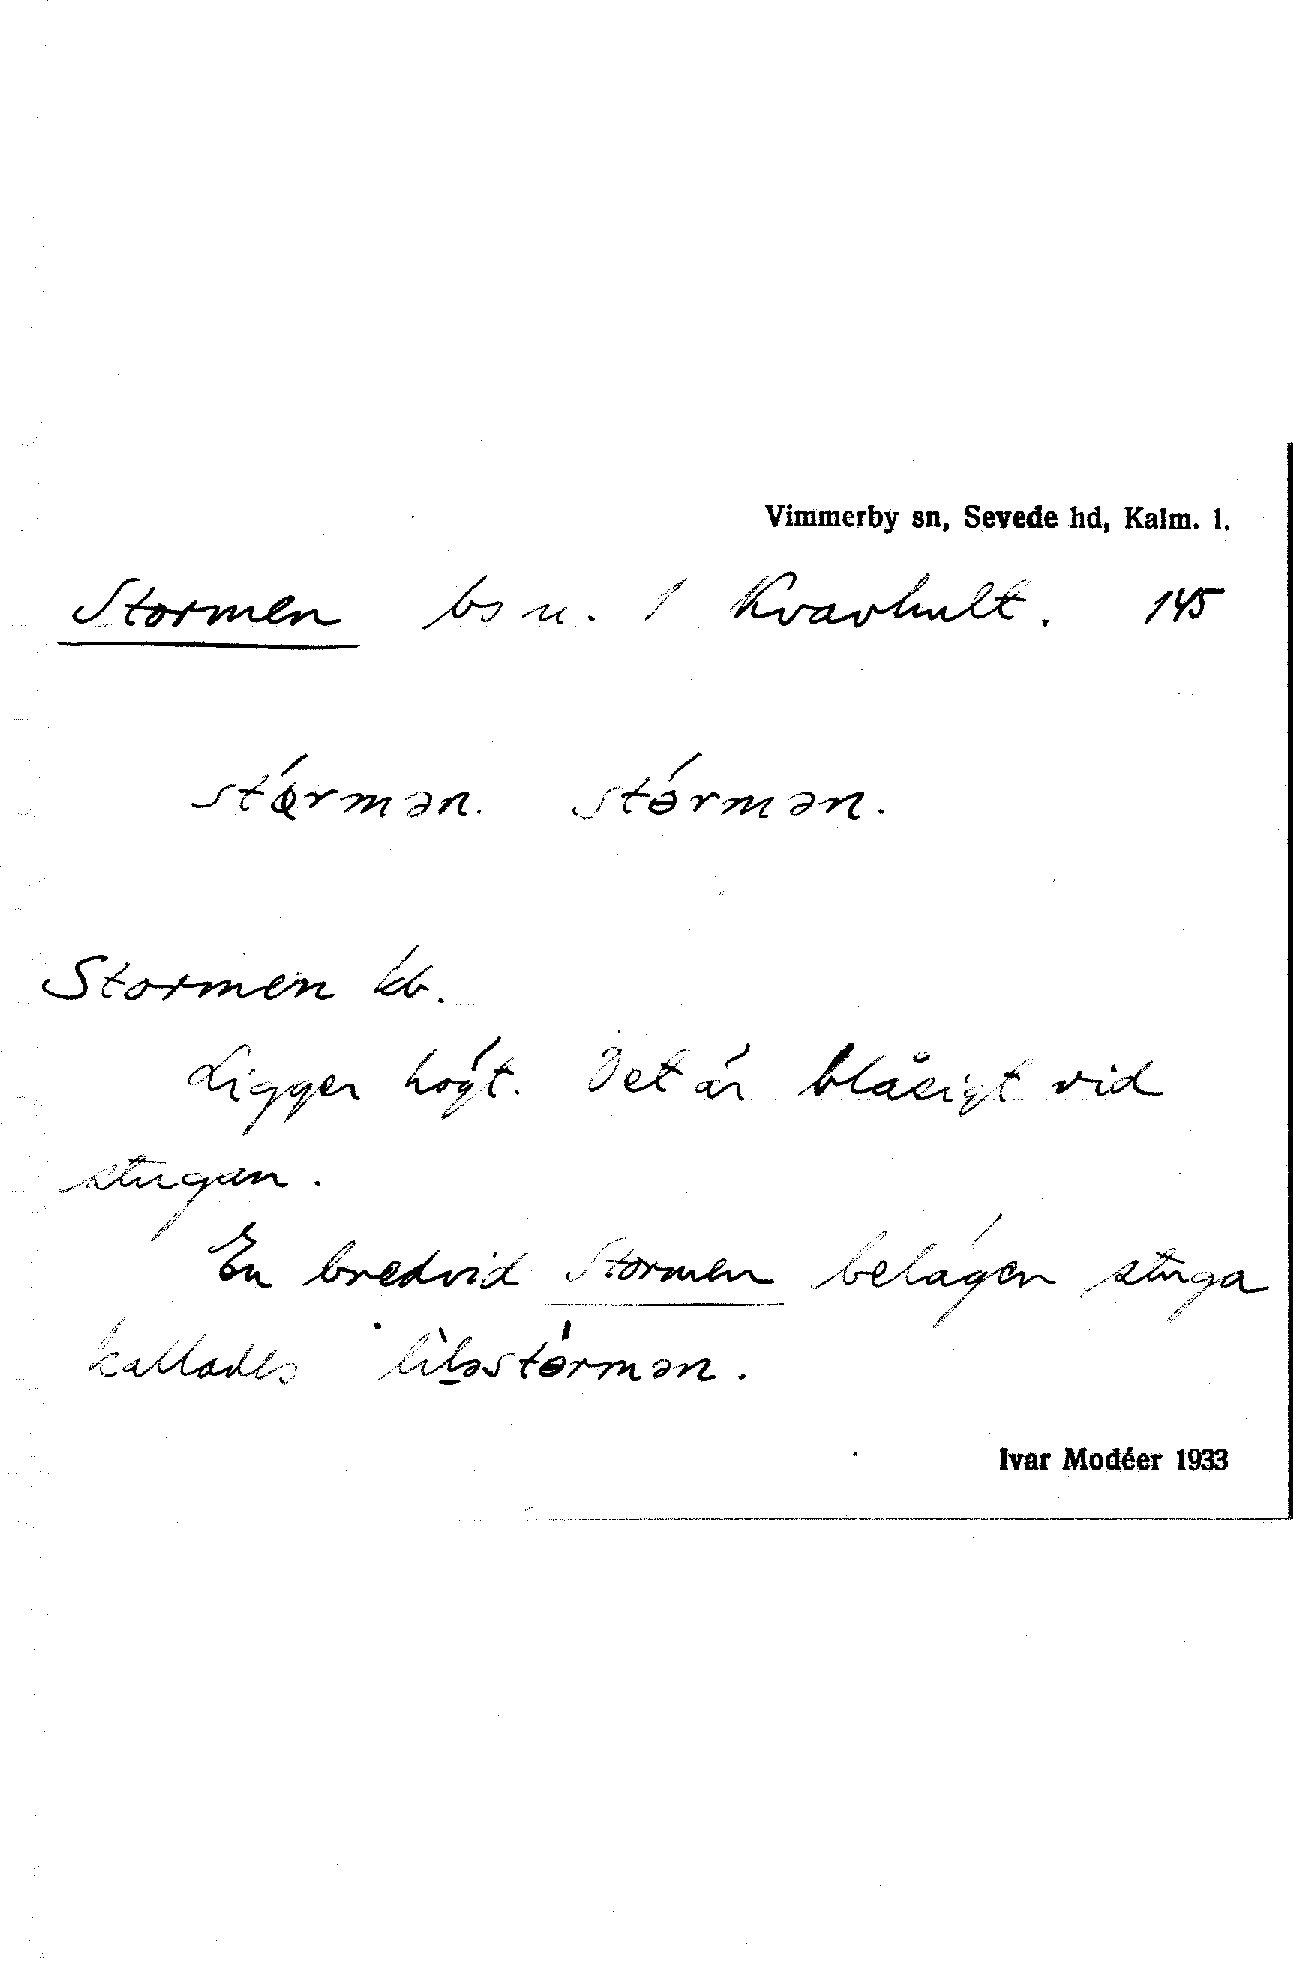 Vimmerby sn, Sevede hd, Kalm. l.
Stormen bs u. 1 Kvavhult. 145
stɵ́rmən. stɵ́rmən.
Stormen kb.
Ligger högt. Det är blåsigt vid
stugan.
En bredvid Stormen belägen stuga
kallades lìləstɵ́rmən.
Ivar Modéer 1933